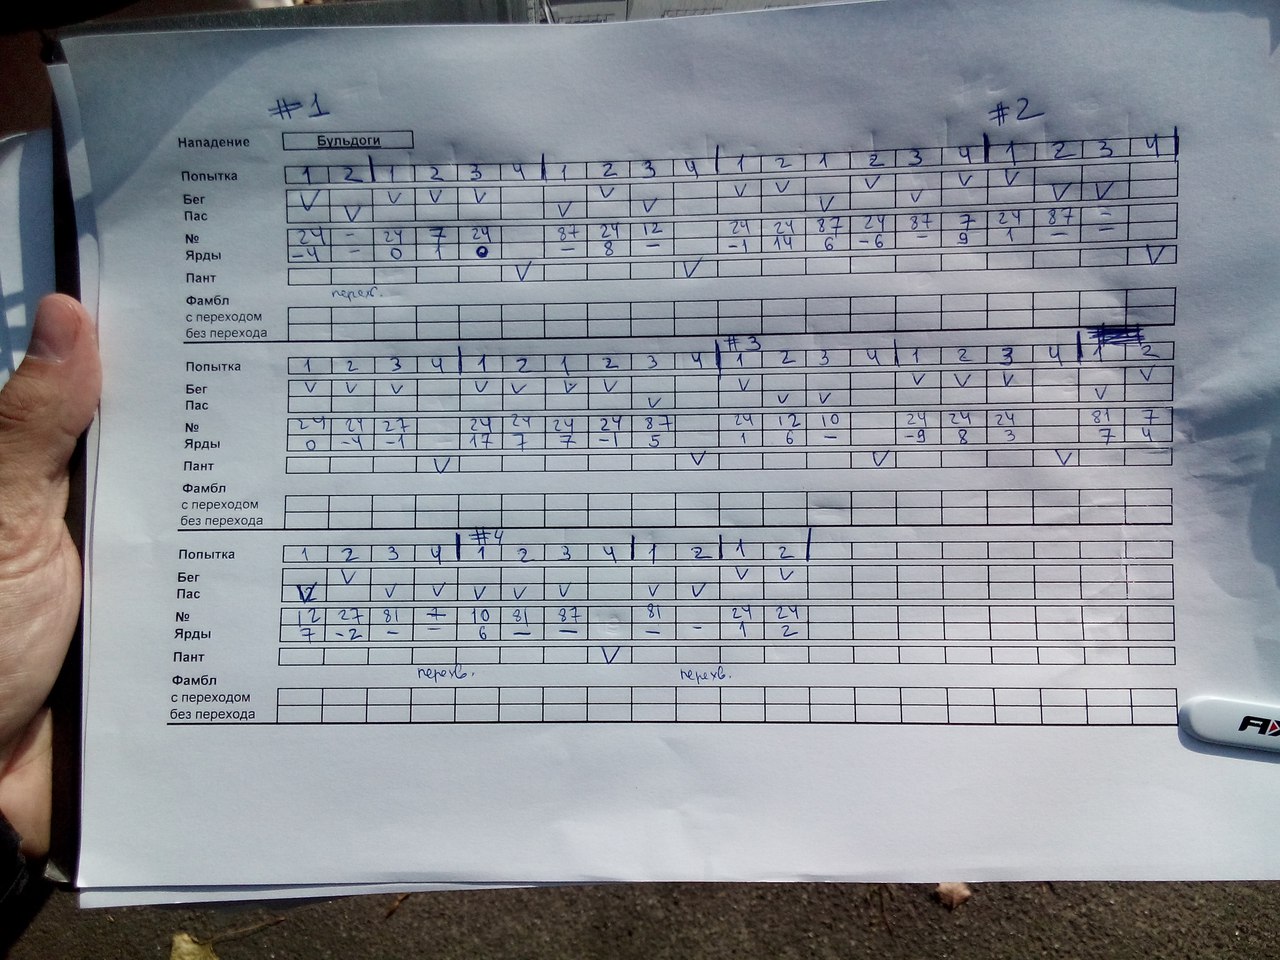 #1 #2
Нападение Бульдоги
Попытка 1 2 1 2 3 4 1 2 3 4 1 2 1 2 3 4 1 2 3 4
Бег V V V V V V V V V V
Пас V V V V V V V
№ 24 - 24 7 24 87 24 12 24 24 87 24 87 7 24 87 -
Ярды -4 - 0 1 0 - 8 - -1 14 6 -6 - 9 1 - -
Пант V V V
Фамбл перехв.
с переходом
без перехода
#3
Попытка 1 2 3 4 1 2 1 2 3 4 1 2 3 4 1 2 3 4 1 2
Бег V V V V V V V V V V V V
Пас V V V V
№ 24 24 27 24 24 24 24 87 24 12 10 24 24 24 81 7
Ярды 0 -4 -1 17 7 7 -1 5 1 6 - -9 8 3 7 4
Пант V V V V
Фамбл
с переходом
без перехода
#4
Попытка 1 2 3 4 1 2 3 4 1 2 1 2
Бег V V V
Пас V V V V V V V V
№ 12 27 81 7 10 81 87 81 24 24
Ярды 7 -2 - - 6 - - - - 1 2
Пант V
Фамбл перехв. перехв.
с переходом
без перехода